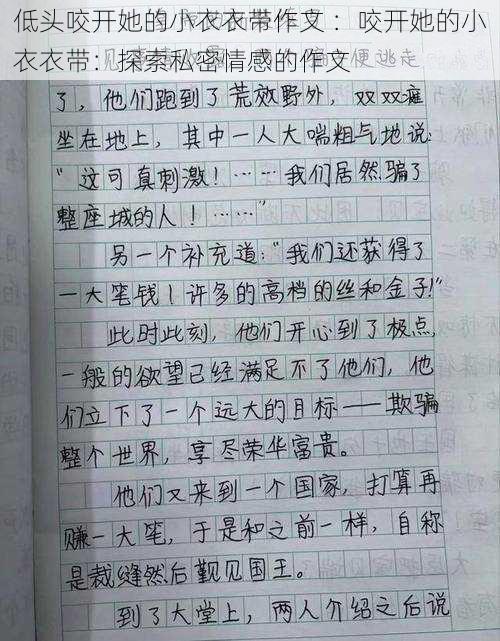 低头咬开她的小衣衣带作文 ：咬开她的小
衣衣带：探索私密情感的作文
便逃走
了，他们跑到了荒效野外，双双瘫
坐在地上，其中一人大喘粗气地说：
“这可真刺激！……我们居然骗了
整座城的人！……”
另一个补充道：“我们还获得了
一大笔钱！许多的高档的丝和金子！”
此时此刻，他们开心到了极点，
一般的欲望已经满足不了他们，他
们立下了一个远大的目标——欺骗
整个世界，享尽荣华富贵。
他们又来到一个国家，打算再
赚一大笔，于是和之前一样，自称
是裁缝然后觐见国王。
到了大堂上，两人介绍之后说